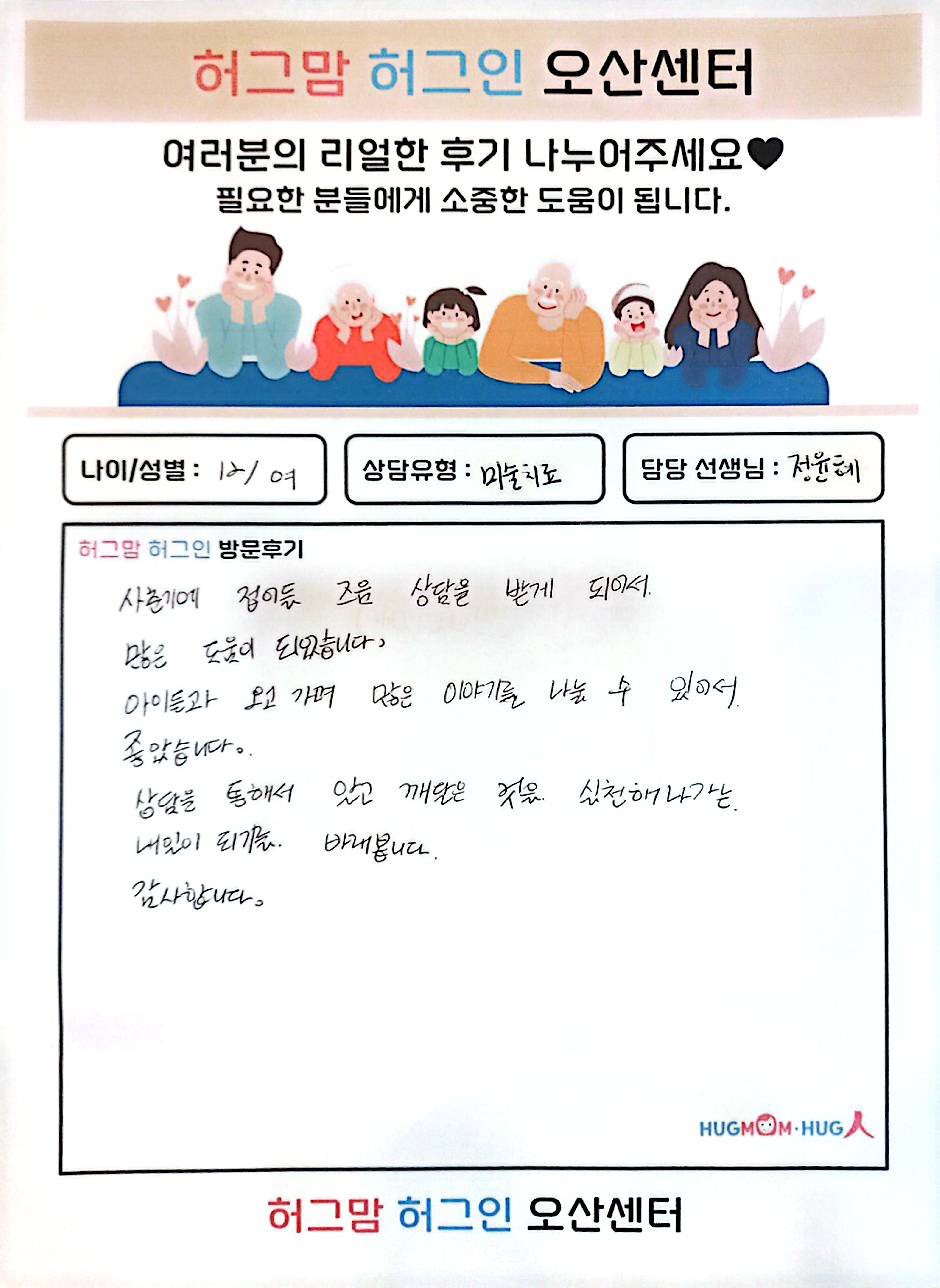 허그맘 허그인 오산센터
여러분의 리얼한 후기 나누어주세요♥
필요한 분들에게 소중한 도움이 됩니다.
나이/성별 : 12/ 여
상담유형 : 미술치료
담당 선생님 : 정윤혜
허그맘 허그인 방문후기
사춘기에 접어들 즈음 상담을 받게 되어서
많은 도움이 되었습니다.
아이들과 오고 가며 많은 이야기를 나눌 수 있어서
좋았습니다.
상담을 통해서 알고 깨달은 것을 실천해나가는
내일이 되기를 바래봅니다.
감사합니다.
HUGMOM·HUG人
허그맘 허그인 오산센터